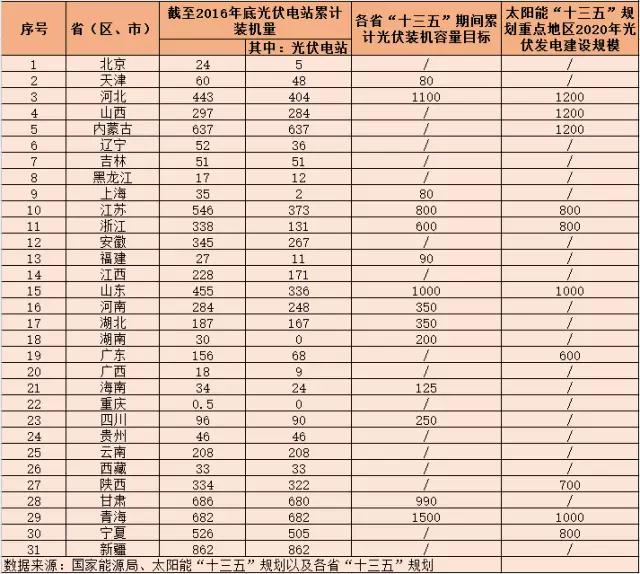 序号 省（区、市） 截至2016年底光伏电站累计装机量 各省“十三五”期间累计光伏装机容量目标 太阳能“十三五”规划重点地区2020年光伏发电建设规模
其中：光伏电站
1 北京 24 5 / /
2 天津 60 48 80 /
3 河北 443 404 1100 1200
4 山西 297 284 / 1200
5 内蒙古 637 637 / 1200
6 辽宁 52 36 / /
7 吉林 51 51 / /
8 黑龙江 17 12 / /
9 上海 35 2 80 /
10 江苏 546 373 800 800
11 浙江 338 131 600 800
12 安徽 345 267 / /
13 福建 27 11 90 /
14 江西 228 171 / /
15 山东 455 336 1000 1000
16 河南 284 248 350 /
17 湖北 187 167 350 /
18 湖南 30 0 200 /
19 广东 156 68 / 600
20 广西 18 9 / /
21 海南 34 24 125 /
22 重庆 0.5 0 / /
23 四川 96 90 250 /
24 贵州 46 46 / /
25 云南 208 208 / /
26 西藏 33 33 / /
27 陕西 334 322 / 700
28 甘肃 686 680 990 /
29 青海 682 682 1500 1000
30 宁夏 526 505 / 800
31 新疆 862 862 / /
数据来源：国家能源局、太阳能“十三五”规划以及各省“十三五”规划